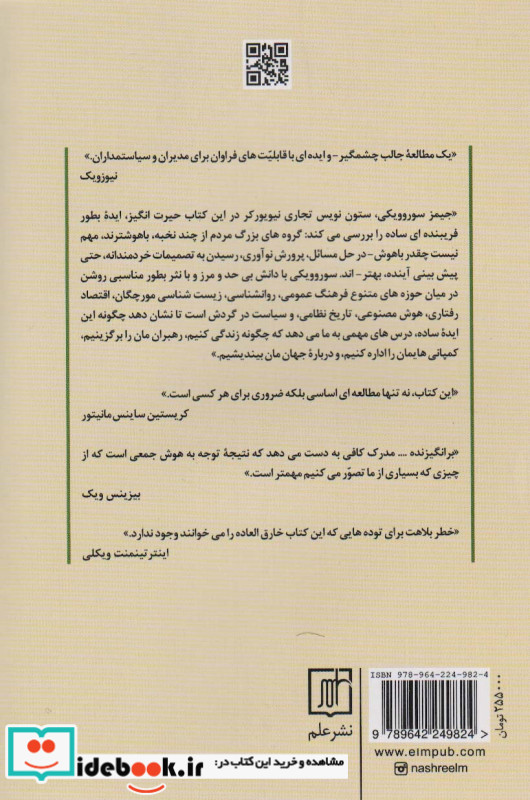 «یک مطالعهٔ جالب چشمگیر - و ایده ای با قابلیّت های فراوان برای مدیران و سیاستمداران.»
نیوزویک
«جیمز سوروویکی، ستون نویس تجاری نیویورکر در این کتاب حیرت انگیز، ایدهٔ بطور
فریبنده ای ساده را بررسی می کند: گروه های بزرگ مردم از چند نخبه، باهوشترند، مهم
نیست چقدر باهوش - در حل مسائل، پرورش نوآوری، رسیدن به تصمیمات خردمندانه، حتی
پیش بینی آینده، بهتر - اند. سوروویکی با دانش بی حد و مرز و با نثر بطور مناسبی روشن
در میان حوزه های متنوع فرهنگ عمومی، روانشناسی، زیست شناسی مورچگان، اقتصاد
رفتاری، هوش مصنوعی، تاریخ نظامی، و سیاست در گردش است تا نشان دهد چگونه این
ایدهٔ ساده، درس های مهمی به ما می دهد که چگونه زندگی کنیم، رهبران مان را برگزینیم،
کمپانی هایمان را اداره کنیم، و دربارهٔ جهان مان بیندیشیم.»
«این کتاب، نه تنها مطالعه ای اساسی بلکه ضروری برای هر کسی است.»
کریستین ساینس مانیتور
«برانگیزنده .... مدرک کافی به دست می دهد که نتیجهٔ توجه به هوش جمعی است که از
چیزی که بسیاری از ما تصوّر می کنیم مهمتر است.»
بیزینس ویک
«خطر بلاهت برای توده هایی که این کتاب خارق العاده را می خوانند وجود ندارد.»
اینترتینمنت ویکلی
ISBN 978-964-224-982-4
9 789642 249824
۲۵۵۰۰۰ تومان
نشر علم
www.elmpub.com
nashreelm
idebook.ir
مشاهده و خرید این کتاب در: